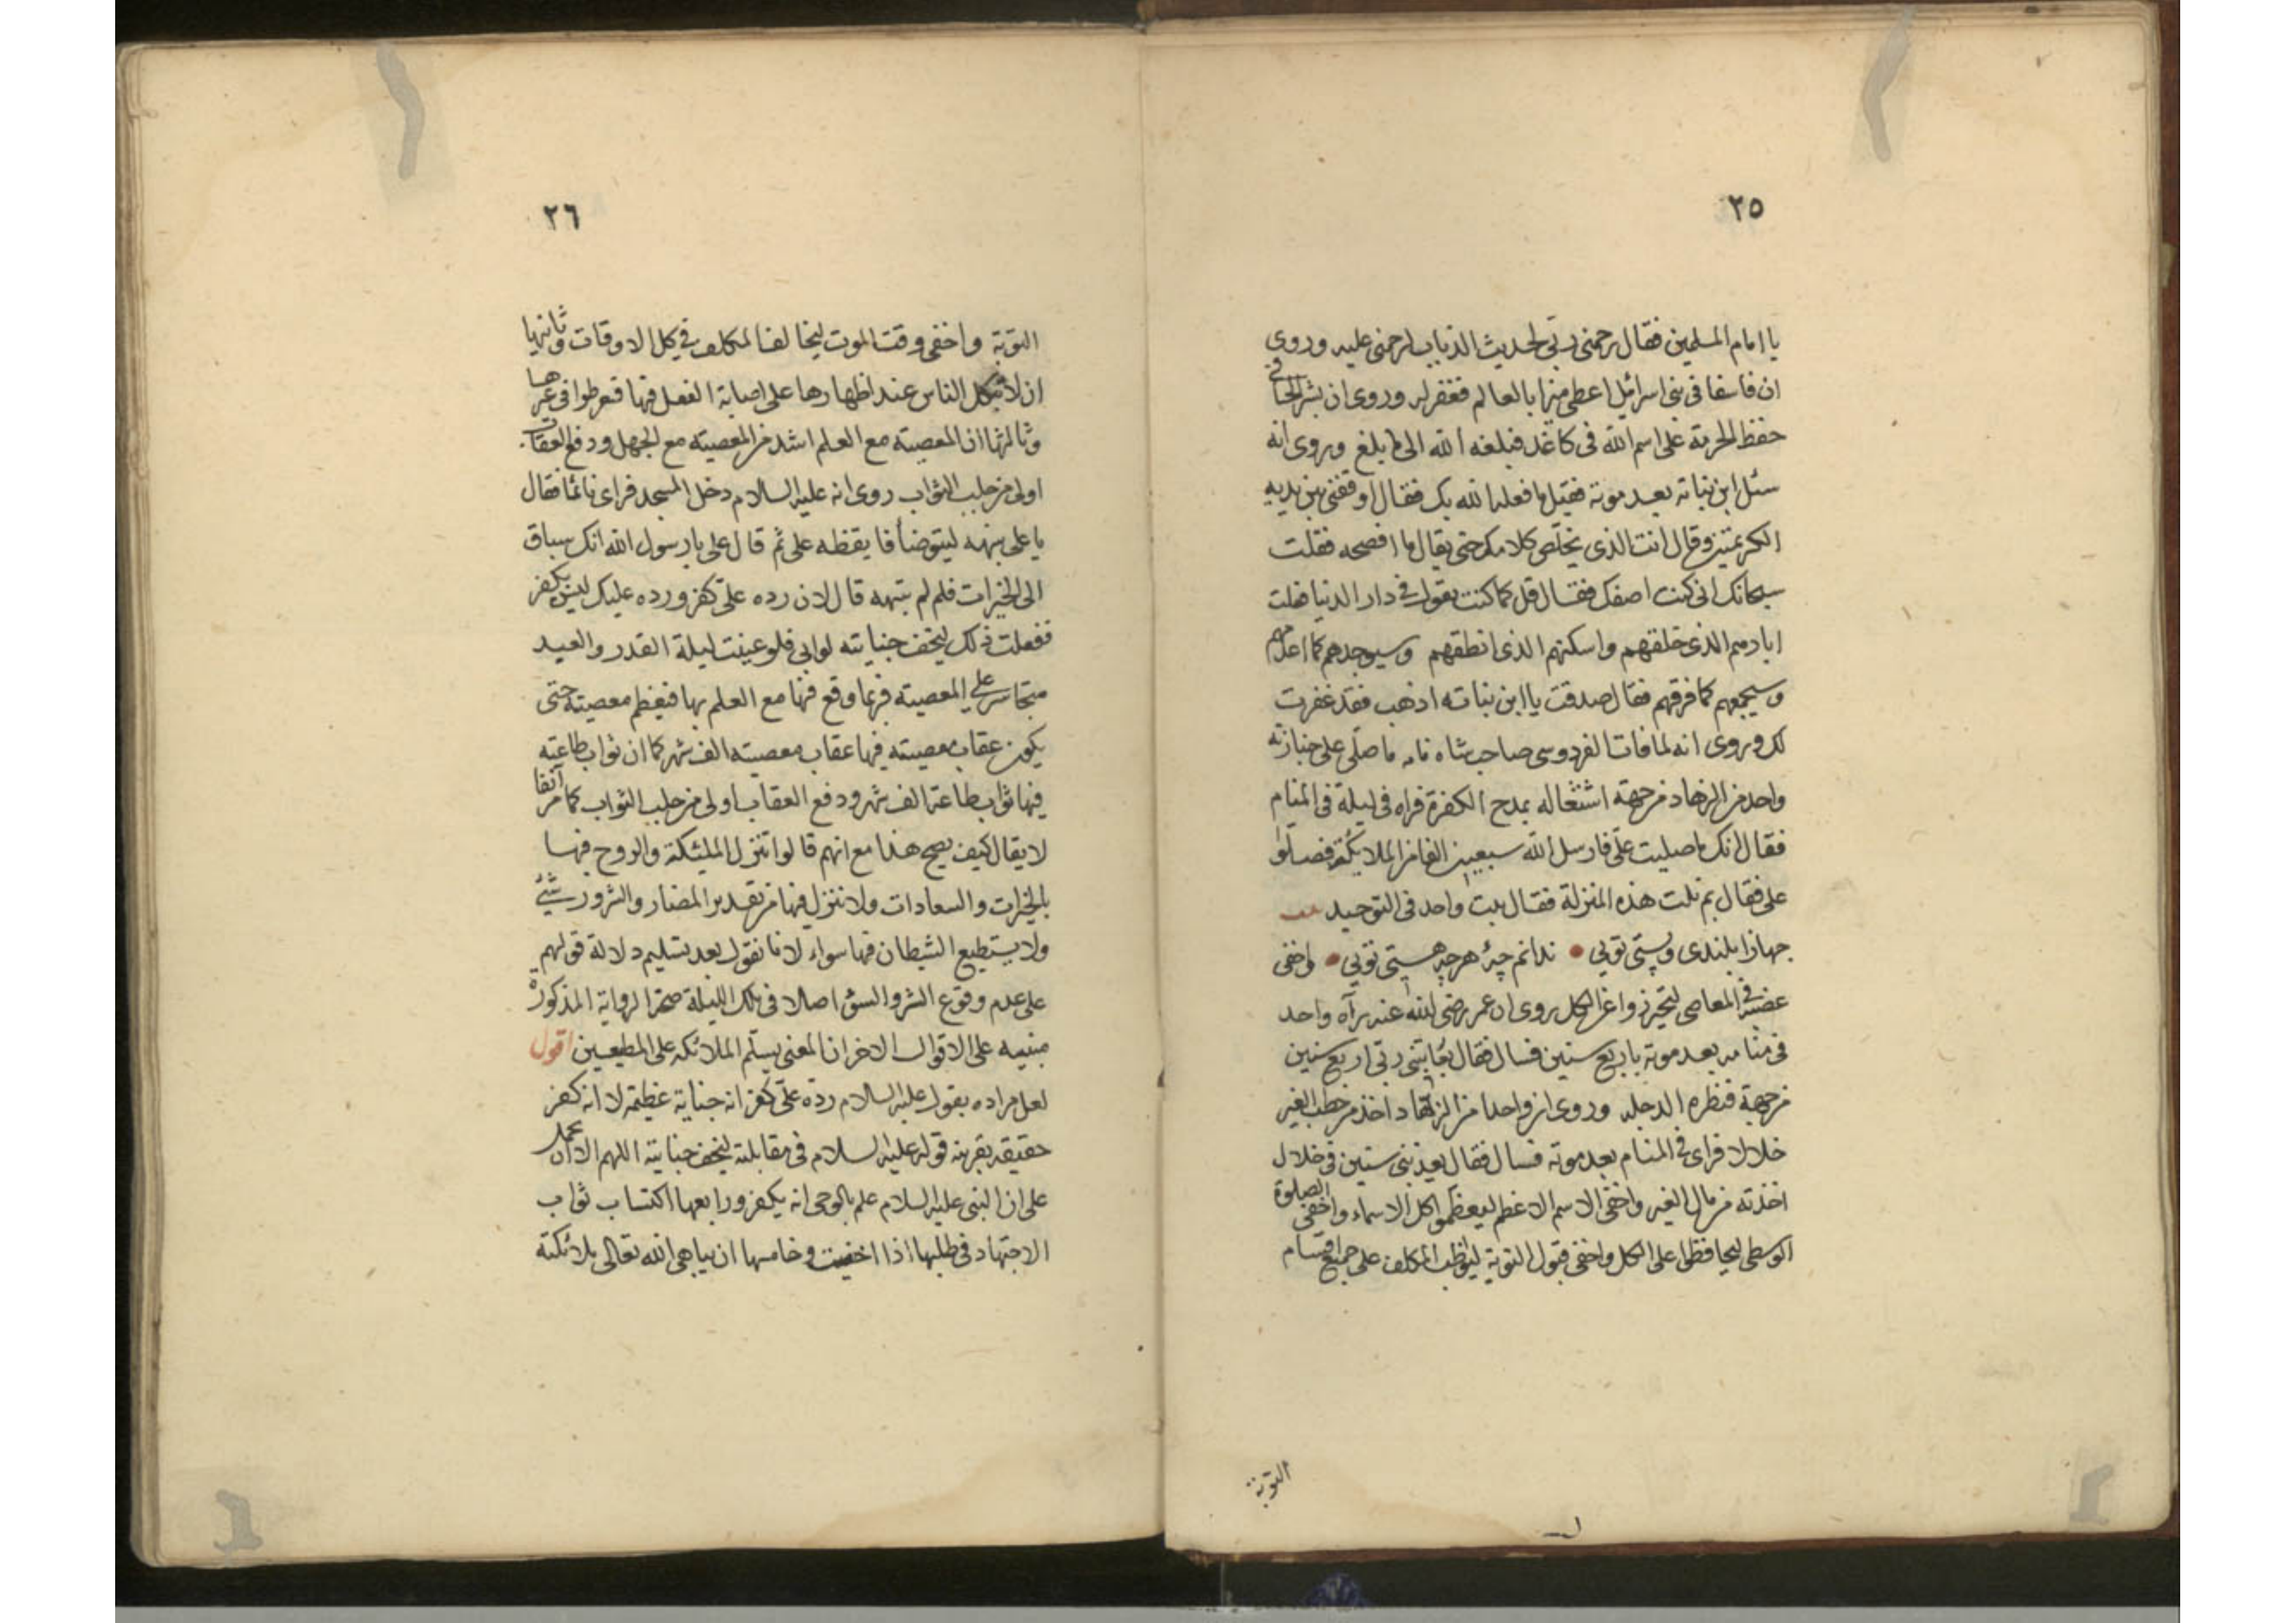 ٢٥
يا امام المسلمين فقال رحمنى ربى لحديث الذباب لرحمتى عليه وروى
ان فاسقا فى بنى اسرائيل اعطى ميزابا لعالم فغفر له وروى ان بشر الحافى
حفظ الحرمة على اسم الله فى كاغد فبلغه الله الى ما بلغ وروى انه
سئل ابن نباتة بعد موته فقيل ما فعل الله بك فقال اوقفنى بين يديه
الكريمتين وقال انت الذى تخلص كلامك حتى يقال ما افصحه فقلت
سبحانك انى كنت اصفك فقال قل كما كنت تقول فى دار الدنيا فقلت
ابادهم الذى خلقهم واسكتهم الذى انطقهم وسيوجدهم كما اعدمهم
وسيجمعهم كما فرقهم فقال صدقت يا ابن نباته اذهب فقد غفرت
لك وروى انه لما فات الفردوسى صاحب شاه نامه ما صلى على جنازته
واحد من الزهاد من جهة اشتغاله بمدح الكفرة فراه فى ليلة فى المنام
فقال انك ما صليت على فارسل الله سبعين الفا من الملائكة فصلوا
على فقال بم نلت هذه المنزلة فقال ببت واحد فى التوحيد
جهانرا بلندى وپستى تويى • ندانم چئ هرچه هستى تويى • واخفى
غضبه فى المعاصى ليتحرزوا عن الكل روى ان عمر رضى الله عنه رآه واحد
فى منامه بعد موته باربع سنين فسال فقال يعاتبنى ربى اربع سنين
من جهة قنطره الدجله وروى ان واحدا من الزهاد اخذ من حطب الغير
خلالا فراى فى المنام بعد موته فسال فقال يعذبنى سنين فى خلال
اخذته من مال الغير واخفى الاسم الاعظم ليعظموا كل الاسماء واخفى الصلوة
الوسطى ليحافظوا على الكل واخفى قبول التوبة ليواظب المكلف على جميع اقسام
التوبة
٢٦
التوبة واخفى وقت الموت ليخالف المكلف فى كل الاوقات وثانيها
ان لا يتكل الناس عند اظهارها على اصابة الفضل فيها فيفرطوا فى غيرها
وثالثها ان المعصية مع العلم اشد من المعصية مع الجهل ودفع العقاب
اولى من جلب الثواب روى انه عليه السلام دخل المسجد فراى نائما فقال
يا على نبهه ليتوضأ فايقظه على ثم قال على يا رسول الله انك سباق
الى الخيرات فلم لم تنبهه قال لان رده على كفر ورده عليك ليس بكفر
ففعلت ذلك ليخف جنايته لو ابى فلو عينت ليلة القدر والعبد
متجاسر على المعصية فربما وقع فيها مع العلم بها فيعظم معصيته حتى
يكون عقاب معصيته فيها عقاب معصيته الف شهر كما ان ثواب طاعته
فيها ثواب طاعة الف شهر ودفع العقاب اولى من جلب الثواب كما مر آنفا
لا يقال كيف يصح هذا مع انهم قالوا تنزل الملئكة والروح فيها
بالخيرات والسعادات ولا تنزل فيها من تقدير المضار والشرور شيئ
ولا يستطيع الشيطان فيها سواء لانا نقول بعد تسليم دلالة قولهم
على عدم وقوع الشر والسوء اصلا فى تلك الليلة صحة الرواية المذكورة
مبنيه على الاقوال الاخر ان المعنى يسلم الملائكه على المطيعين اقول
لعل مراده بقوله عليه السلام رده على كفر انه جناية عظيمه لا انه كفر
حقيقة بقرينه قوله عليه السلام فى مقابلته ليخف جنايته اللهم الا ان يحمل
على ان النبى عليه السلام علم بالوحى انه يكفر ورابعها اكتساب ثواب
الاجتهاد فى طلبها اذا اخفيت وخامسها ان يباهى الله تعالى بملائكته